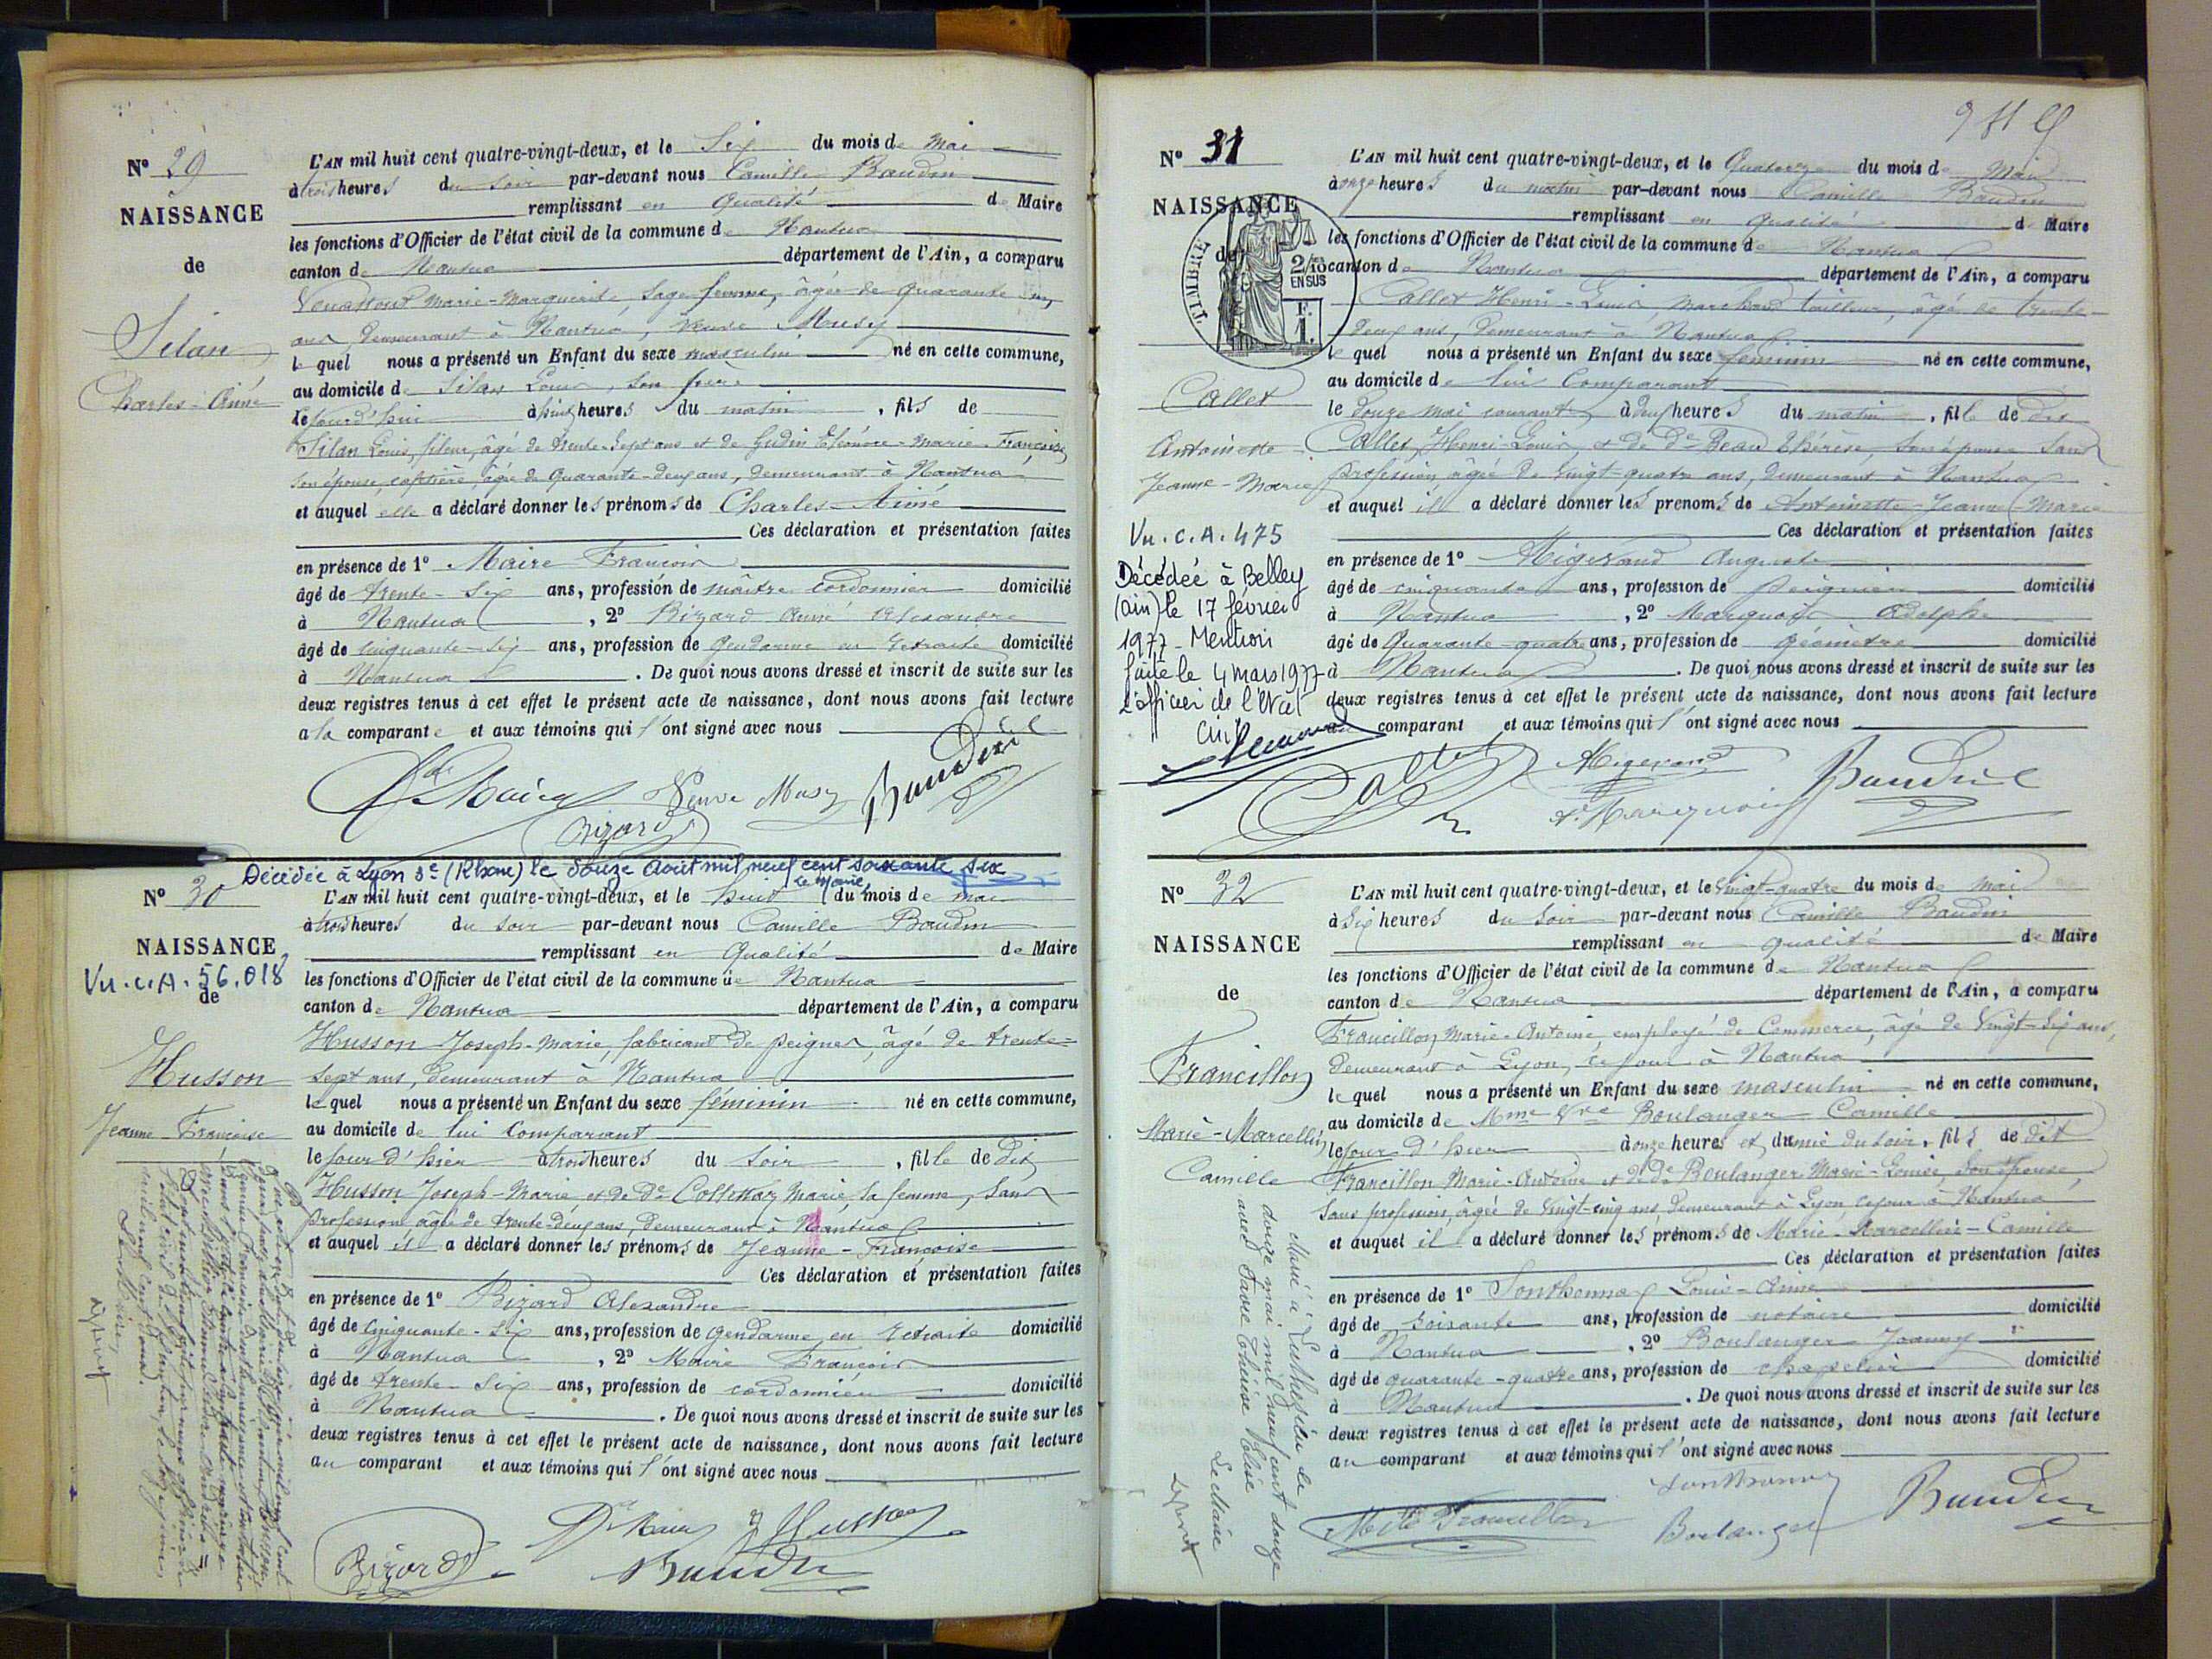 N° 29
NAISSANCE
de
Silan
Charles-Aimé
L'AN mil huit cent quatre-vingt-deux, et le Six du mois de Mai
à trois heures du soir par-devant nous Camille Baudin
remplissant en qualité de Maire
les fonctions d'Officier de l'état civil de la commune de Nantua
canton de Nantua département de l'Ain, a comparu
Marie-Marguerite, Sage femme, âgée de quarante
ans, demeurant à Nantua, Veuve Musy
le quel nous a présenté un Enfant du sexe masculin né en cette commune,
au domicile de Silan Louis, son père
le jourd'hui à huit heures du matin, fils de
Silan Louis, fileur, âgé de trente-sept ans et de Gudin Eléonore-Marie-Françoise
son épouse, âgée de quarante-deux ans, demeurant à Nantua
et auquel elle a déclaré donner les prénoms de Charles-Aimé
Ces déclaration et présentation faites
en présence de 1° Maire François
âgé de trente-six ans, profession de maître cordonnier domicilié
à Nantua, 2° Bizard Aimé Alexandre
âgé de cinquante-six ans, profession de gendarme en retraite domicilié
à Nantua. De quoi nous avons dressé et inscrit de suite sur les
deux registres tenus à cet effet le présent acte de naissance, dont nous avons fait lecture
a la comparante et aux témoins qui l'ont signé avec nous
Veuve Musy Baudin
Bizard
Décédée à Lyon 3e (Rhône) le douze Août mil neuf cent soixante six
Le Maire,
N° 30
NAISSANCE
Vu. C.A. 56.018
de
Husson
Jeanne Françoise
L'AN mil huit cent quatre-vingt-deux, et le huit du mois de mai
à trois heures du soir par-devant nous Camille Baudin
remplissant en qualité de Maire
les fonctions d'Officier de l'état civil de la commune de Nantua
canton de Nantua département de l'Ain, a comparu
Husson Joseph-Marie, fabricant de peignes, âgé de trente-
sept ans, demeurant à Nantua
le quel nous a présenté un Enfant du sexe féminin né en cette commune,
au domicile de lui comparant
le jour d'hier à trois heures du soir, fille de dit
Husson Joseph-Marie, et de De Collettaz Marie, sa femme, sans
profession, âgée de trente-deux ans, demeurant à Nantua
et auquel il a déclaré donner les prénoms de Jeanne-Françoise
Ces déclaration et présentation faites
en présence de 1° Bizard Alexandre
âgé de cinquante-six ans, profession de gendarme en retraite domicilié
à Nantua, 2° Maire François
âgé de trente-six ans, profession de cordonnier domicilié
à Nantua. De quoi nous avons dressé et inscrit de suite sur les
deux registres tenus à cet effet le présent acte de naissance, dont nous avons fait lecture
au comparant et aux témoins qui l'ont signé avec nous
Husson
Bizard Baudin
N° 31
NAISSANCE
de
TIMBRE
2/10es
EN SUS
F.
1.
Callet
Antoinette
Jeanne-Marie
Vu. C.A. 475
Décédée à Belley
(Ain) le 17 février
1977 - Mention
faite le 4 mars 1977
L'officier de l'Etat
Civil
L'AN mil huit cent quatre-vingt-deux, et le Quatorze du mois de Mai
à onze heures du matin par-devant nous Camille Baudin
remplissant en qualité de Maire
les fonctions d'Officier de l'état civil de la commune de Nantua
canton de Nantua département de l'Ain, a comparu
Callet Henri-Louis, marchand tailleur, âgé de trente-
deux ans, demeurant à Nantua
le quel nous a présenté un Enfant du sexe féminin né en cette commune,
au domicile de lui comparant
le douze mai courant, à deux heures du matin, fille de dit
Callet, Henri-Louis, et de De Beau Thérèse, son épouse, sans
profession, âgée de vingt-quatre ans, demeurant à Nantua
et auquel il a déclaré donner les prénoms de Antoinette-Jeanne-Marie
Ces déclaration et présentation faites
en présence de 1° Migerand Auguste
âgé de cinquante ans, profession de domicilié
à Nantua, 2° Marquois Adolphe
âgé de quarante-quatre ans, profession de géomètre domicilié
à Nantua. De quoi nous avons dressé et inscrit de suite sur les
deux registres tenus à cet effet le présent acte de naissance, dont nous avons fait lecture
au comparant et aux témoins qui l'ont signé avec nous
Callet Migerand Baudin
A. Marquois
N° 32
NAISSANCE
de
Francillon
Marie-Marcellin
Camille
L'AN mil huit cent quatre-vingt-deux, et le vingt-quatre du mois de Mai
à six heures du soir par-devant nous Camille Baudin
remplissant en qualité de Maire
les fonctions d'Officier de l'état civil de la commune de Nantua
canton de Nantua département de l'Ain, a comparu
Francillon Marie-Antoine, employé de commerce, âgé de vingt-six ans,
demeurant à Lyon, ce jour à Nantua
le quel nous a présenté un Enfant du sexe masculin né en cette commune,
au domicile de Mme Vve Boulanger Camille
le jour d'hier à onze heures et demie du soir, fils de dit
Francillon Marie-Antoine et de De Boulanger Marie-Louise, son épouse,
sans profession, âgée de vingt-cinq ans, demeurant à Lyon ce jour à Nantua
et auquel il a déclaré donner les prénoms de Marie-Marcellin-Camille
Ces déclaration et présentation faites
en présence de 1° Sonthonnax Louis-Aimé
âgé de soixante ans, profession de notaire domicilié
à Nantua, 2° Boulanger Joanny
âgé de quarante-quatre ans, profession de chapelier domicilié
à Nantua. De quoi nous avons dressé et inscrit de suite sur les
deux registres tenus à cet effet le présent acte de naissance, dont nous avons fait lecture
au comparant et aux témoins qui l'ont signé avec nous
Sonthonnax
Francillon Boulanger Baudin
Marié à le
douze mai mil neuf cent douze
avec
Le Maire